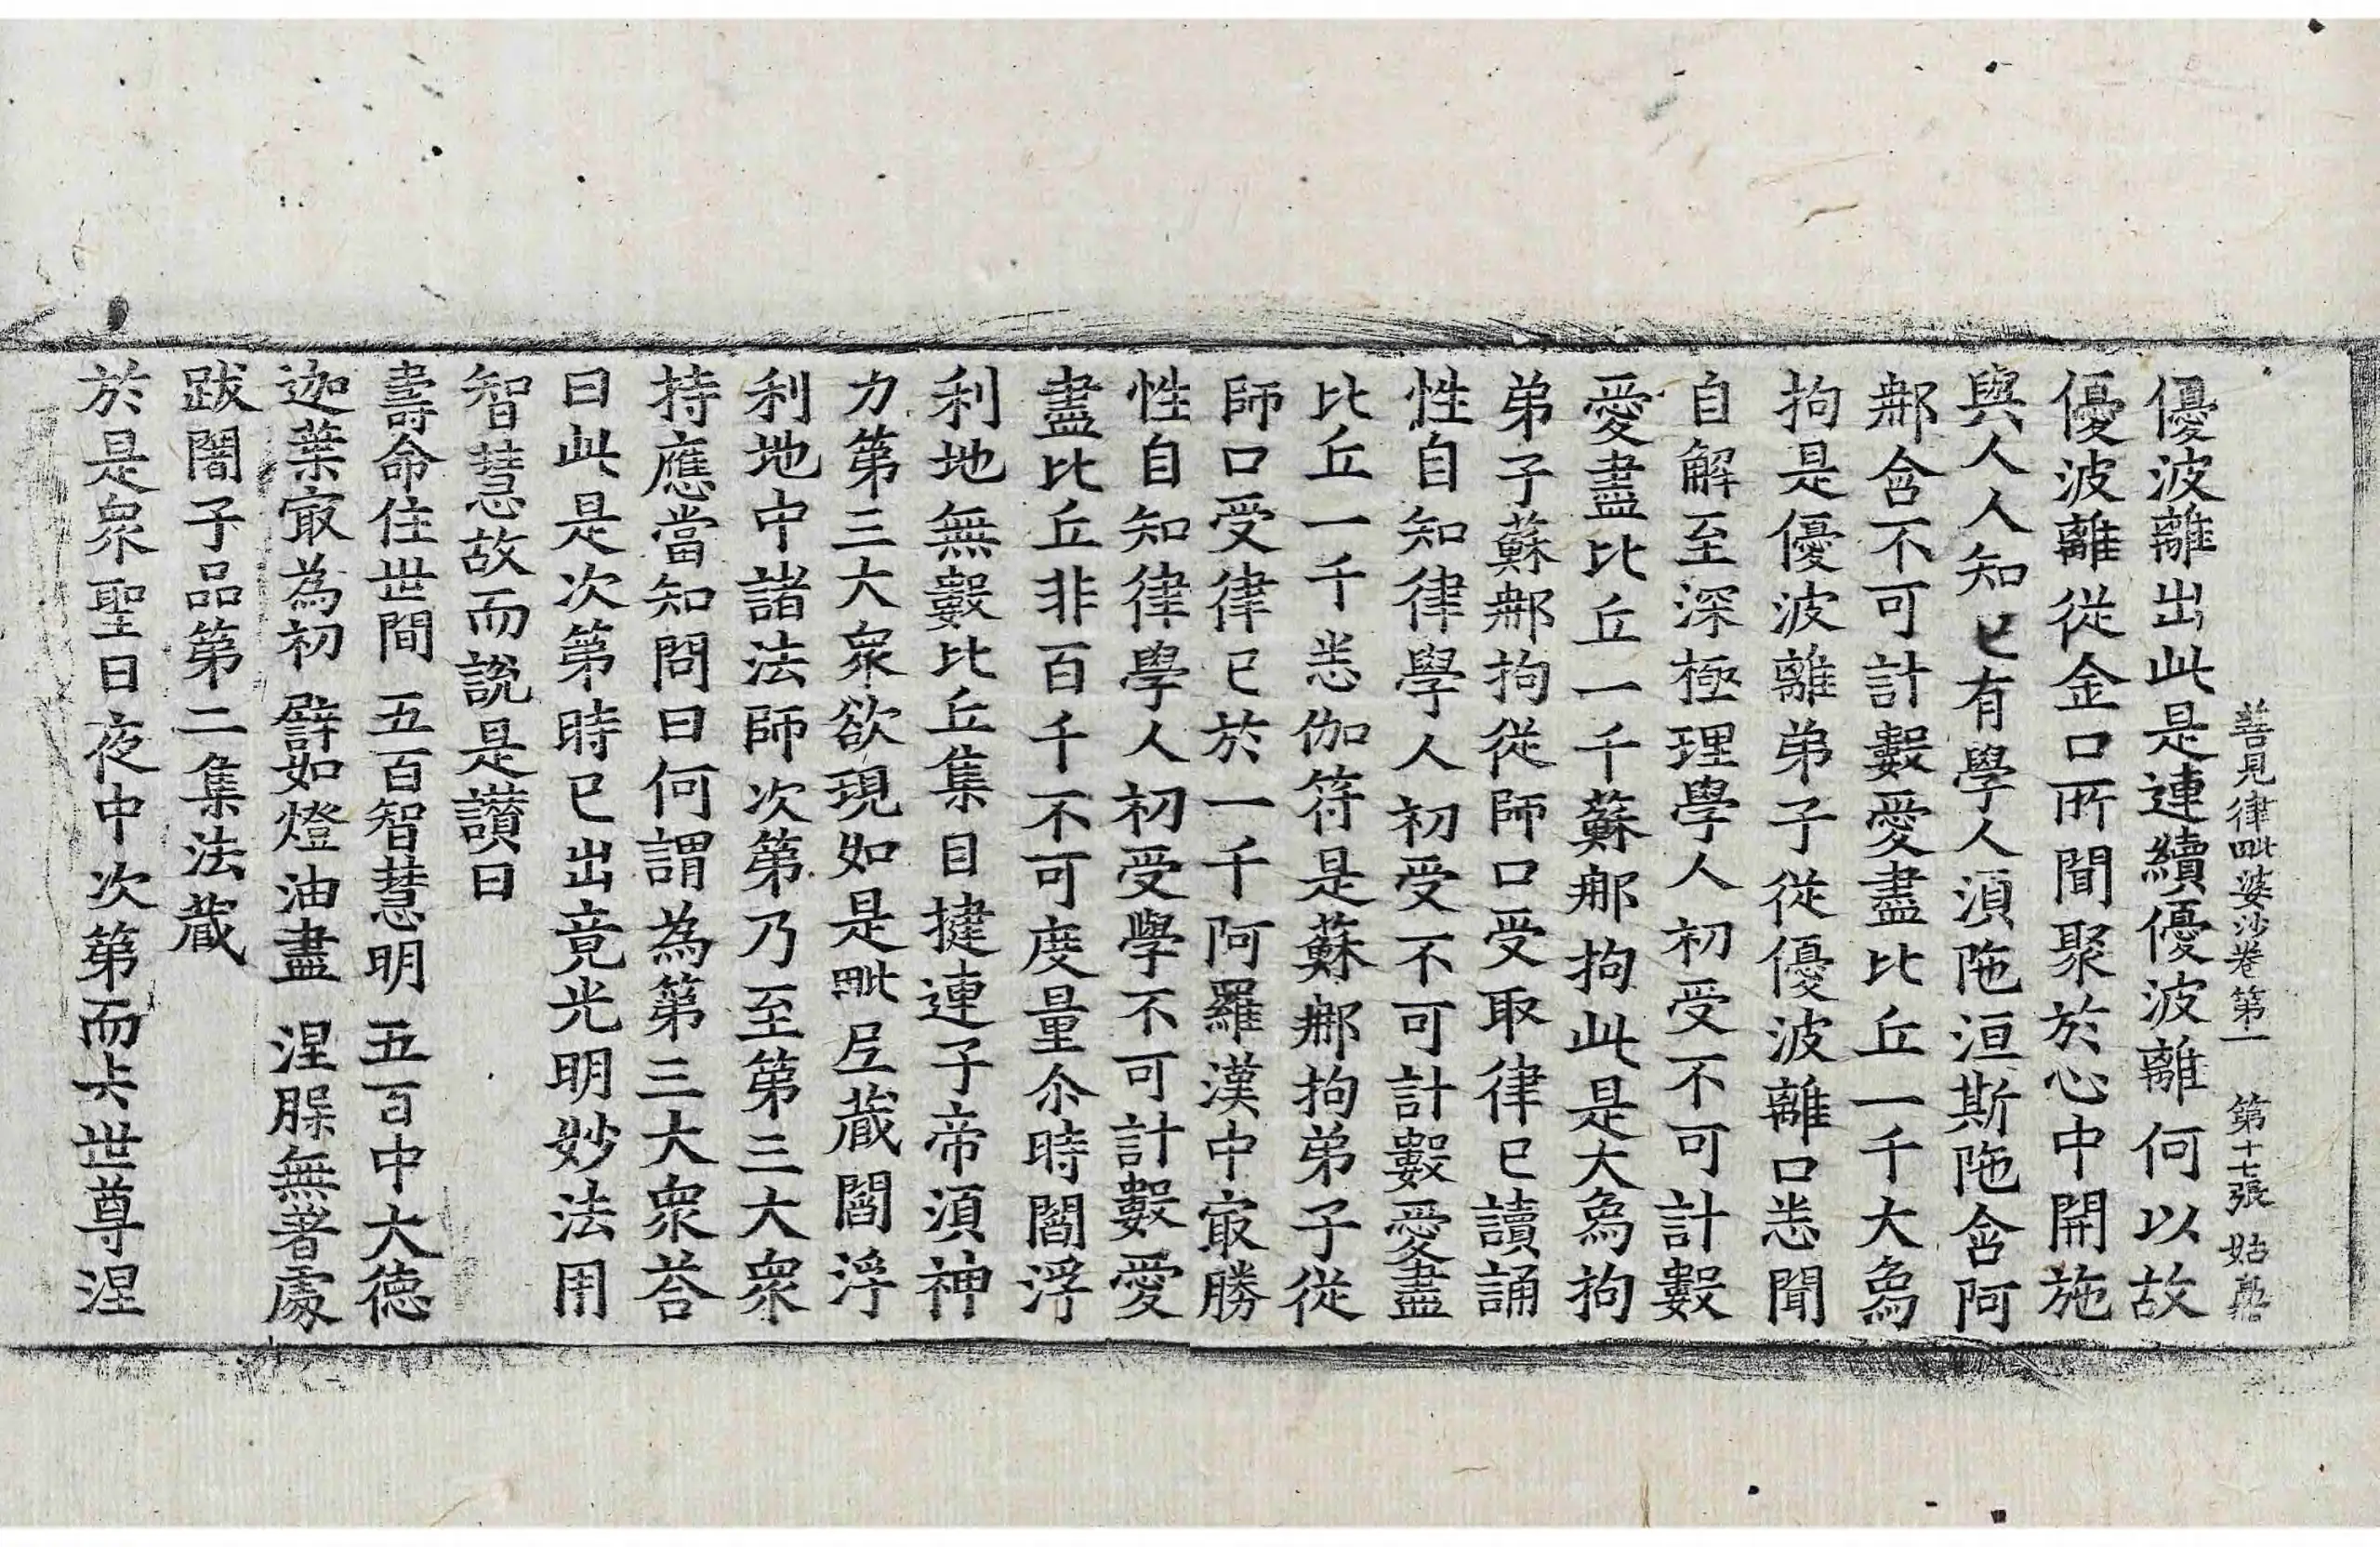 善見律毗婆沙卷第一 第十七張 姑
優波離出此是連續優波離何以故
優波離從金口所聞聚於心中開施
與人人知已有學人湏陁洹斯陁含阿
郍含不可計數愛盡比丘一千大烏
拘是優波離弟子從優波離口悉聞
自解至深極理學人初受不可計數
愛盡比丘一千蘇郍拘此是大烏拘
弟子蘇郍拘從師口受取律已讀誦
性自知律學人初受不可計數愛盡
比丘一千悉伽符是蘇郍拘弟子從
師口受律已於一千阿羅漢中㝡勝
性自知律學人初受學不可計數愛
盡比丘非百千不可度量尒時閻浮
利地無數比丘集目揵連子帝湏神
力第三大衆欲現如是毗尼藏閻浮
利地中諸法師次第乃至第三大衆
持應當知問曰何謂為第三大衆荅
曰此是次第時已出竟光明妙法用
智慧故而說是讚曰
壽命住世間 五百智慧明 五百中大德
迦葉㝡為初 譬如燈油盡 涅槃無著處
跋闍子品第二集法藏
於是衆聖日夜中次第而去世尊涅